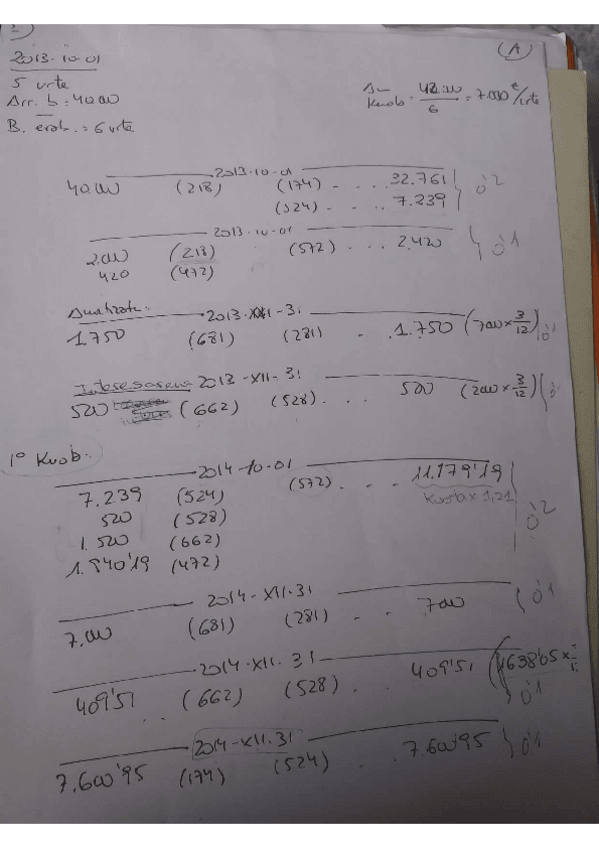 2013-10-01
(A)
5 urte
Arr. b = 40.000
B. erab. = 6 urte
Kuob = 42.000 / 6 = 7.000 €/urte
2013-10-01
40.000 (218) (174) - . . . 32.761 } 0'2
(524) - . . . 7.239
2013-10-01
2.000 (218) (572) . . . 2.420 } 0'1
420 (472)
2013-XII-31
1.750 (681) (281) - . 1.750 (7000 x 3/12) 0'1
Interesarena 2013-XII-31
500 (662) (528) . . . 500 (2000 x 3/12)
1º Kuob.
2014-10-01
7.239 (524) (572) - . . . 11.179'19
Kuota x 1,21
(528) 0'2
(662)
(472)
2014-XII-31
7.000 (681) (281) . . 7.000 0'1
2014-XII-31
409'51 (662) (528) . . 409'51 0'1
2014-XII-31
7.600'95 (174) (524) . . 7.600'95 0'1